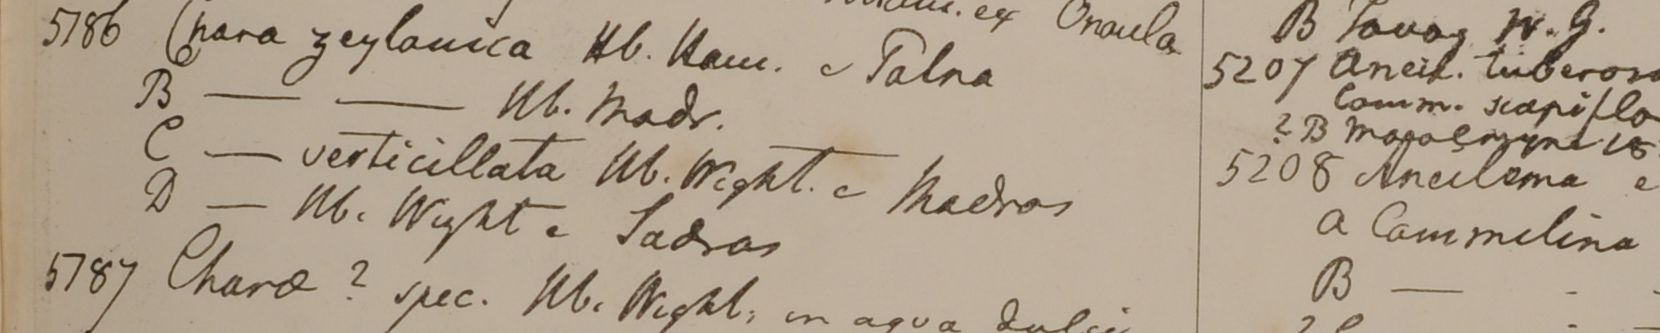 ex Onoula
5786 Chara zeylanica Hb. Ham. e Patna
B — — Hb. Madr.
C — verticillata Hb. Wight. e Madras
D — Hb. Wight e Sadras
5787 Charæ ? spec. Hb. Wight, in aqua dulci
B Tavoy W. G.
5207 Aneil. tuberosu
Comm. scapiflo
? B
5208 Aneilema e
a Commelina
B —
? C